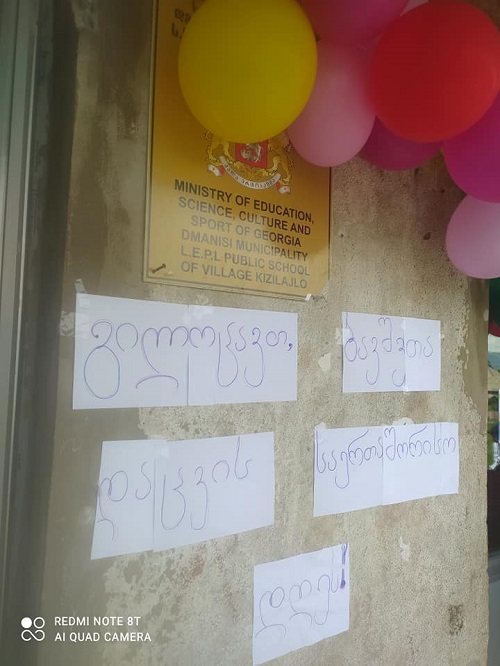 MINISTRY OF EDUCATION,
SCIENCE, CULTURE AND
SPORT OF GEORGIA
DMANISI MUNICIPALITY
L.E.P.L PUBLIC SCHOOL
OF VILLAGE KIZILAJLO
გილოცავთ, ბავშვთა
დაცვის საერთაშორისო
დღეს!
REDMI NOTE 8T
AI QUAD CAMERA